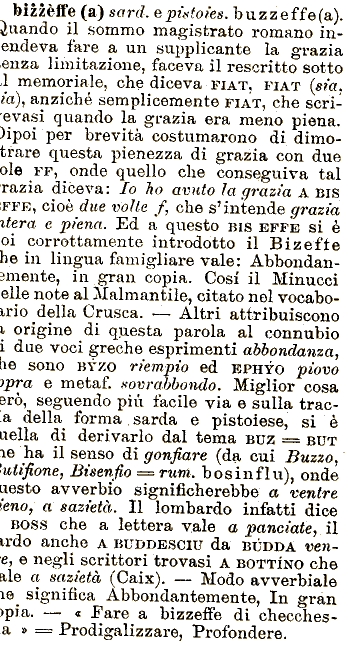 bizzèffe (a) sard. e pistoies. buzzeffe(a).
Quando il sommo magistrato romano in-
endeva fare a un supplicante la grazia
enza limitazione, faceva il rescritto sotto
l memoriale, che diceva FIAT, FIAT (sia,
ia), anziché semplicemente FIAT, che scri-
evasi quando la grazia era meno piena.
Dipoi per brevità costumarono di dimo-
trare questa pienezza di grazia con due
ole FF, onde quello che conseguiva tal
razia diceva: Io ho avuto la grazia A BIS
EFFE, cioè due volte f, che s'intende grazia
ntera e piena. Ed a questo BIS EFFE si è
oi corrottamente introdotto il Bizeffe
he in lingua famigliare vale: Abbondan-
emente, in gran copia. Cosí il Minucci
elle note al Malmantile, citato nel vocabo-
ario della Crusca. — Altri attribuiscono
a origine di questa parola al connubio
i due voci greche esprimenti abbondanza,
he sono BÝZO riempio ed EPHÝO piovo
opra e metaf. sovrabbondo. Miglior cosa
erò, seguendo più facile via e sulla trac-
ia della forma sarda e pistoiese, si è
uella di derivarlo dal tema BUZ = BUT
he ha il senso di gonfiare (da cui Buzzo,
Butifione, Bisenfio = rum. bosinflu), onde
uesto avverbio significherebbe a ventre
ieno, a sazietà. Il lombardo infatti dice
BOSS che a lettera vale a panciate, il
ardo anche A BUDDESCIU da BÚDDA ven-
re, e negli scrittori trovasi A BOTTINO che
ale a sazietà (Caix). — Modo avverbiale
he significa Abbondantemente, In gran
opia. — « Fare a bizzeffe di checches-
ia » = Prodigalizzare, Profondere.